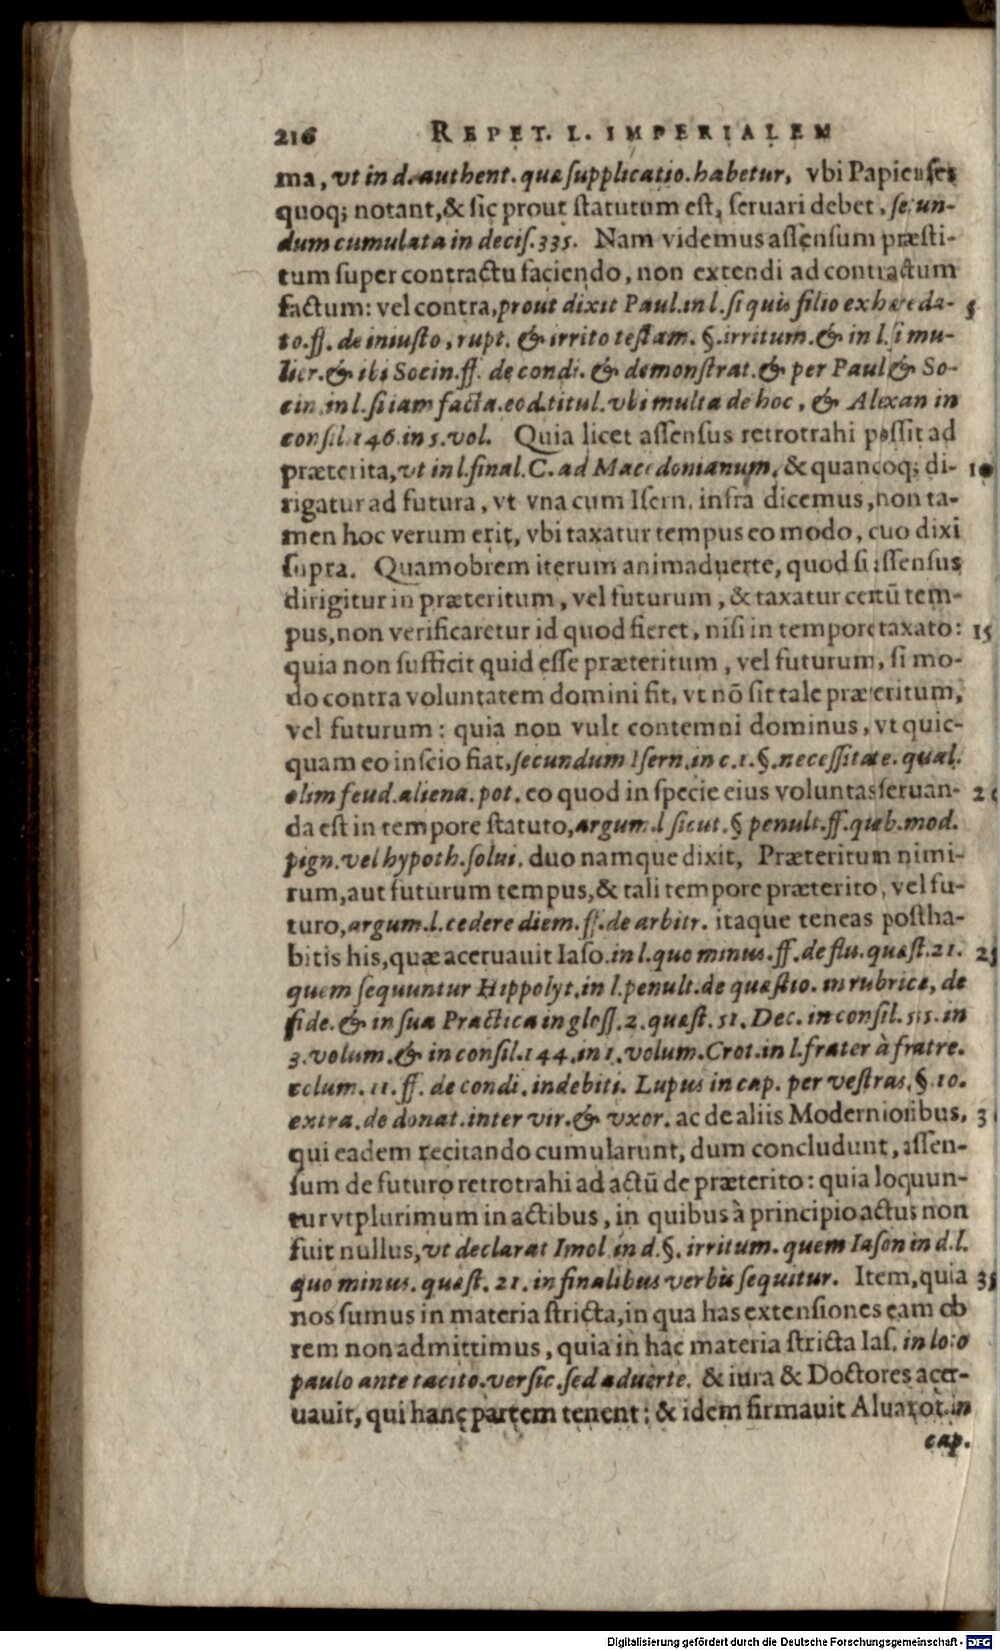 216 REPET. L. IMPERIALEM
ma, vt in d. authent. quæ supplicatio. habetur, vbi Papienſes
quoq; notant, & ſic prout ſtatutum eſt, ſeruari debet, ſecun-
dum cumulata in deciſ. 335. Nam videmus aſſenſum præſti-
tum ſuper contractu faciendo, non extendi ad contractum
factum: vel contra, prout dixit Paul. in l. ſi quis filio exhæreda- 5
to. ff. de iniuſto, rupt. & irrito teſtam. §. irritum. & in l. ſi mu-
lier. & ibi Socin. ff. de condi. & demonſtrat. & per Paul & So-
cin. in l. ſi iam facta. eod. titul. vbi multa de hoc, & Alexan in
conſil. 146. in 5. vol. Quia licet aſſenſus retrotrahi poſſit ad
præterita, vt in l. final. C. ad Macedonianum, & quancoq; di- 10
rigatur ad futura, vt vna cum Iſern. infra dicemus, non ta-
men hoc verum erit, vbi taxatur tempus eo modo, cuo dixi
ſupra. Quamobrem iterum animaduerte, quod ſi aſſenſus
dirigitur in præteritum, vel futurum, & taxatur certū tem-
pus, non verificaretur id quod fieret, niſi in tempore taxato: 15
quia non ſufficit quid eſſe præteritum, vel futurum, ſi mo-
do contra voluntatem domini fit, vt nō ſit tale præteritum,
vel futurum: quia non vult contemni dominus, vt quic-
quam eo inſcio fiat, ſecundum Iſern. in c. 1. §. neceſſitate. qual.
olim feud. aliena. pot. eo quod in ſpecie eius voluntas ſeruan- 20
da eſt in tempore ſtatuto, argum. l ſicut. § penult. ff. quib. mod.
pign. vel hypoth. ſolui. duo namque dixit, Præteritum nimi-
rum, aut futurum tempus, & tali tempore præterito, vel fu-
turo, argum. l. cedere diem. ff. de arbitr. itaque teneas poſtha-
bitis his, quæ aceruauit Iaſo. in l. quo minus. ff. de flu. quæſt. 21. 25
quem ſequuntur Hippolyt. in l. penult. de quæſtio. in rubrica, de
fide. & in ſua Practica in gloſſ. 2. quæſt. 51. Dec. in conſil. 515. in
3. volum. & in conſil. 144. in 1. volum. Crot. in l. frater à fratre.
clum. 11. ff. de condi. indebiti. Lupus in cap. per veſtras, §. 10.
extra. de donat. inter vir. & vxor. ac de aliis Modernioribus, 3
qui eadem recitando cumularunt, dum concludunt, aſſen-
ſum de futuro retrotrahi ad actū de præterito: quia loquun-
tur vt plurimum in actibus, in quibus à principio actus non
fuit nullus, vt declarat Imol in d. §. irritum. quem Iaſon in d. l.
quo minus. quæſt. 21. in finalibus verbis ſequitur. Item, quia 35
nos ſumus in materia ſtricta, in qua has extenſiones eam ob
rem non admittimus, quia in hac materia ſtricta Iaſ. in loco
paulo ante tacito. verſic. ſed aduerte. & iura & Doctores acer-
uauit, qui hanc partem tenent: & idem firmauit Aluarot. in
cap.
Digitalisierung gefördert durch die Deutsche Forschungsgemeinschaft - DFG